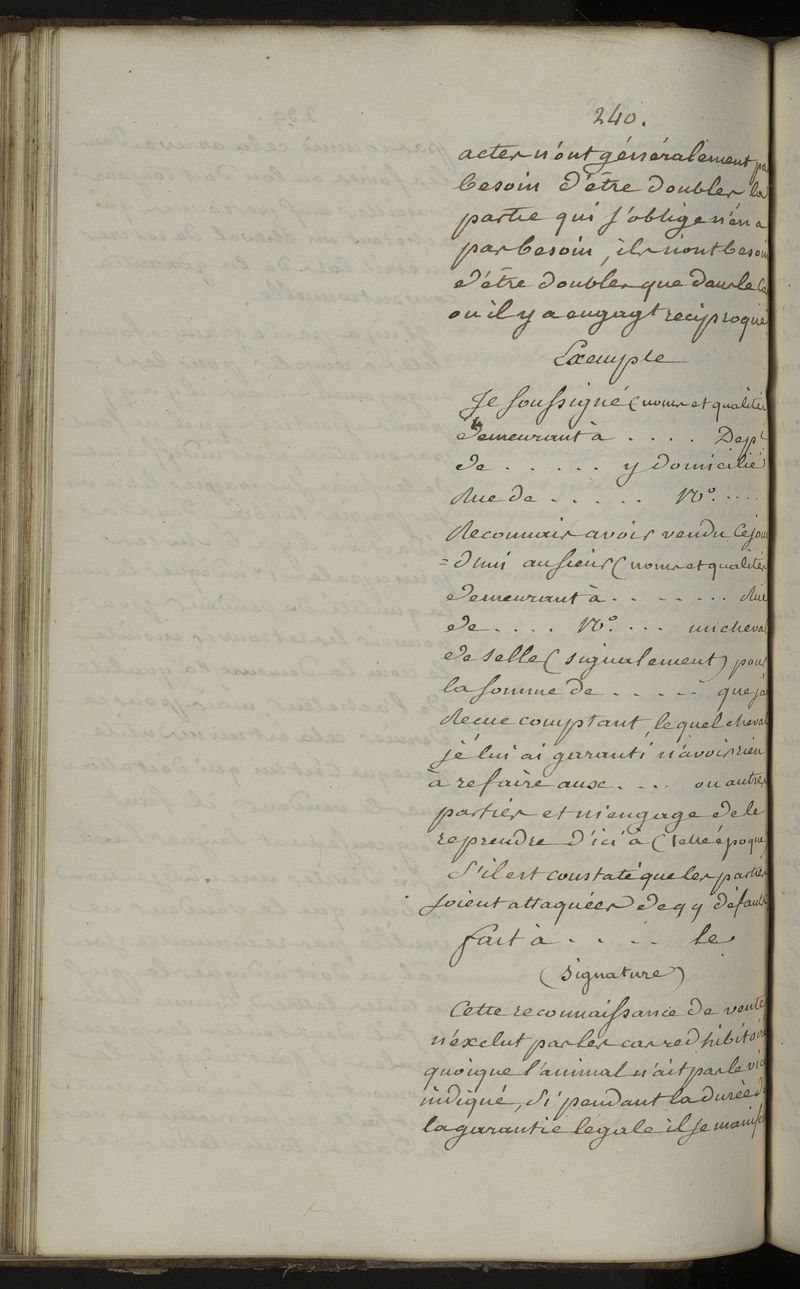 240.
acter n'ont généralement pa
besoin d'être doubler la
partie qui s'oblige n'en a
par besoin, ils n'ont besoin
d'être doubler que dans le Ca
ou il y a engagt reciproque
Exemple
Je soussigné (noms et qualités
demeurant à . . . . Dept
de . . . . . y domicilié
Rue de . . . . . No. . . .
Reconnais avoir vendu Cejour
=d'hui au sieur (noms et qualités
demeurant à . . . . . . . Rue
de . . . . No. . . . un cheval
de selle (signalement) pour
la somme de . . . . . que j'ai
Recue comptant, lequel cheval
je lui ai garanti n'avoir rien
à refaire aux . . . . ou autres
parties et m'engage de le
reprendre d'ici à (telle époque)
S'il est constaté que les parties
soient attaquées de qq défauts
fait à . . . . . le
(signature)
Cette reconnaissance de vente
n'exclut par les cas redhibitoire
quoique l'animal n'ait par le vice
indiqué, Si pendant la durée de
la garantie legale il se manifes